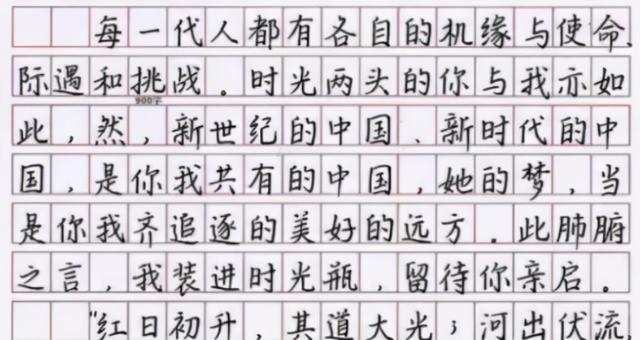 每一代人都有各自的机缘与使命、
际遇和挑战。时光两头的你与我亦如
900字
此，然，新世纪的中国、新时代的中
国，是你我共有的中国，她的梦，当
是你我齐追逐的美好的远方。此肺腑
之言，我装进时光瓶，留待你亲启。
"红日初升，其道大光；河出伏流，